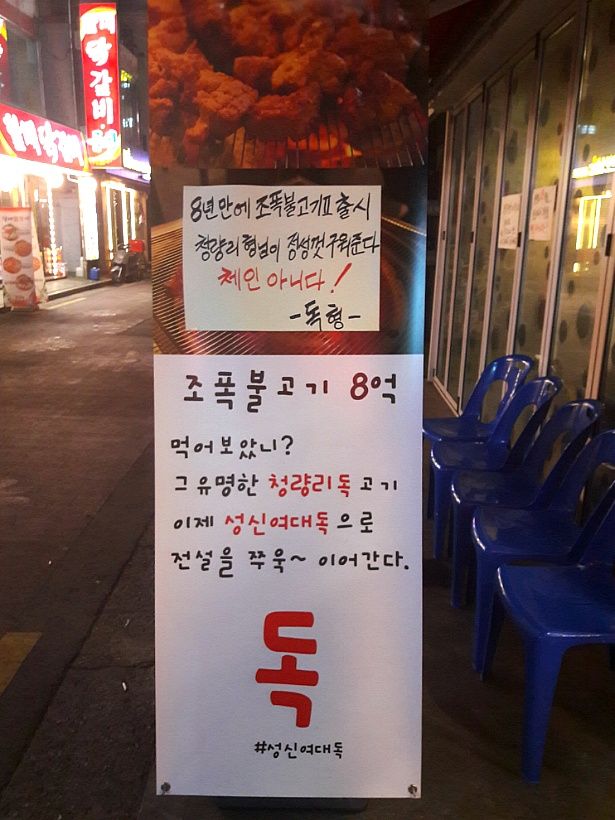 닭갈비
8년만에 조폭불고기Ⅱ 출시
청량리 형님이 정성껏 구워준다
체인 아니다!
-독형-
조폭불고기 8억
먹어보았니?
그 유명한 청량리독고기
이제 성신여대독으로
전설을 쭈욱~ 이어간다.
독
#성신여대독